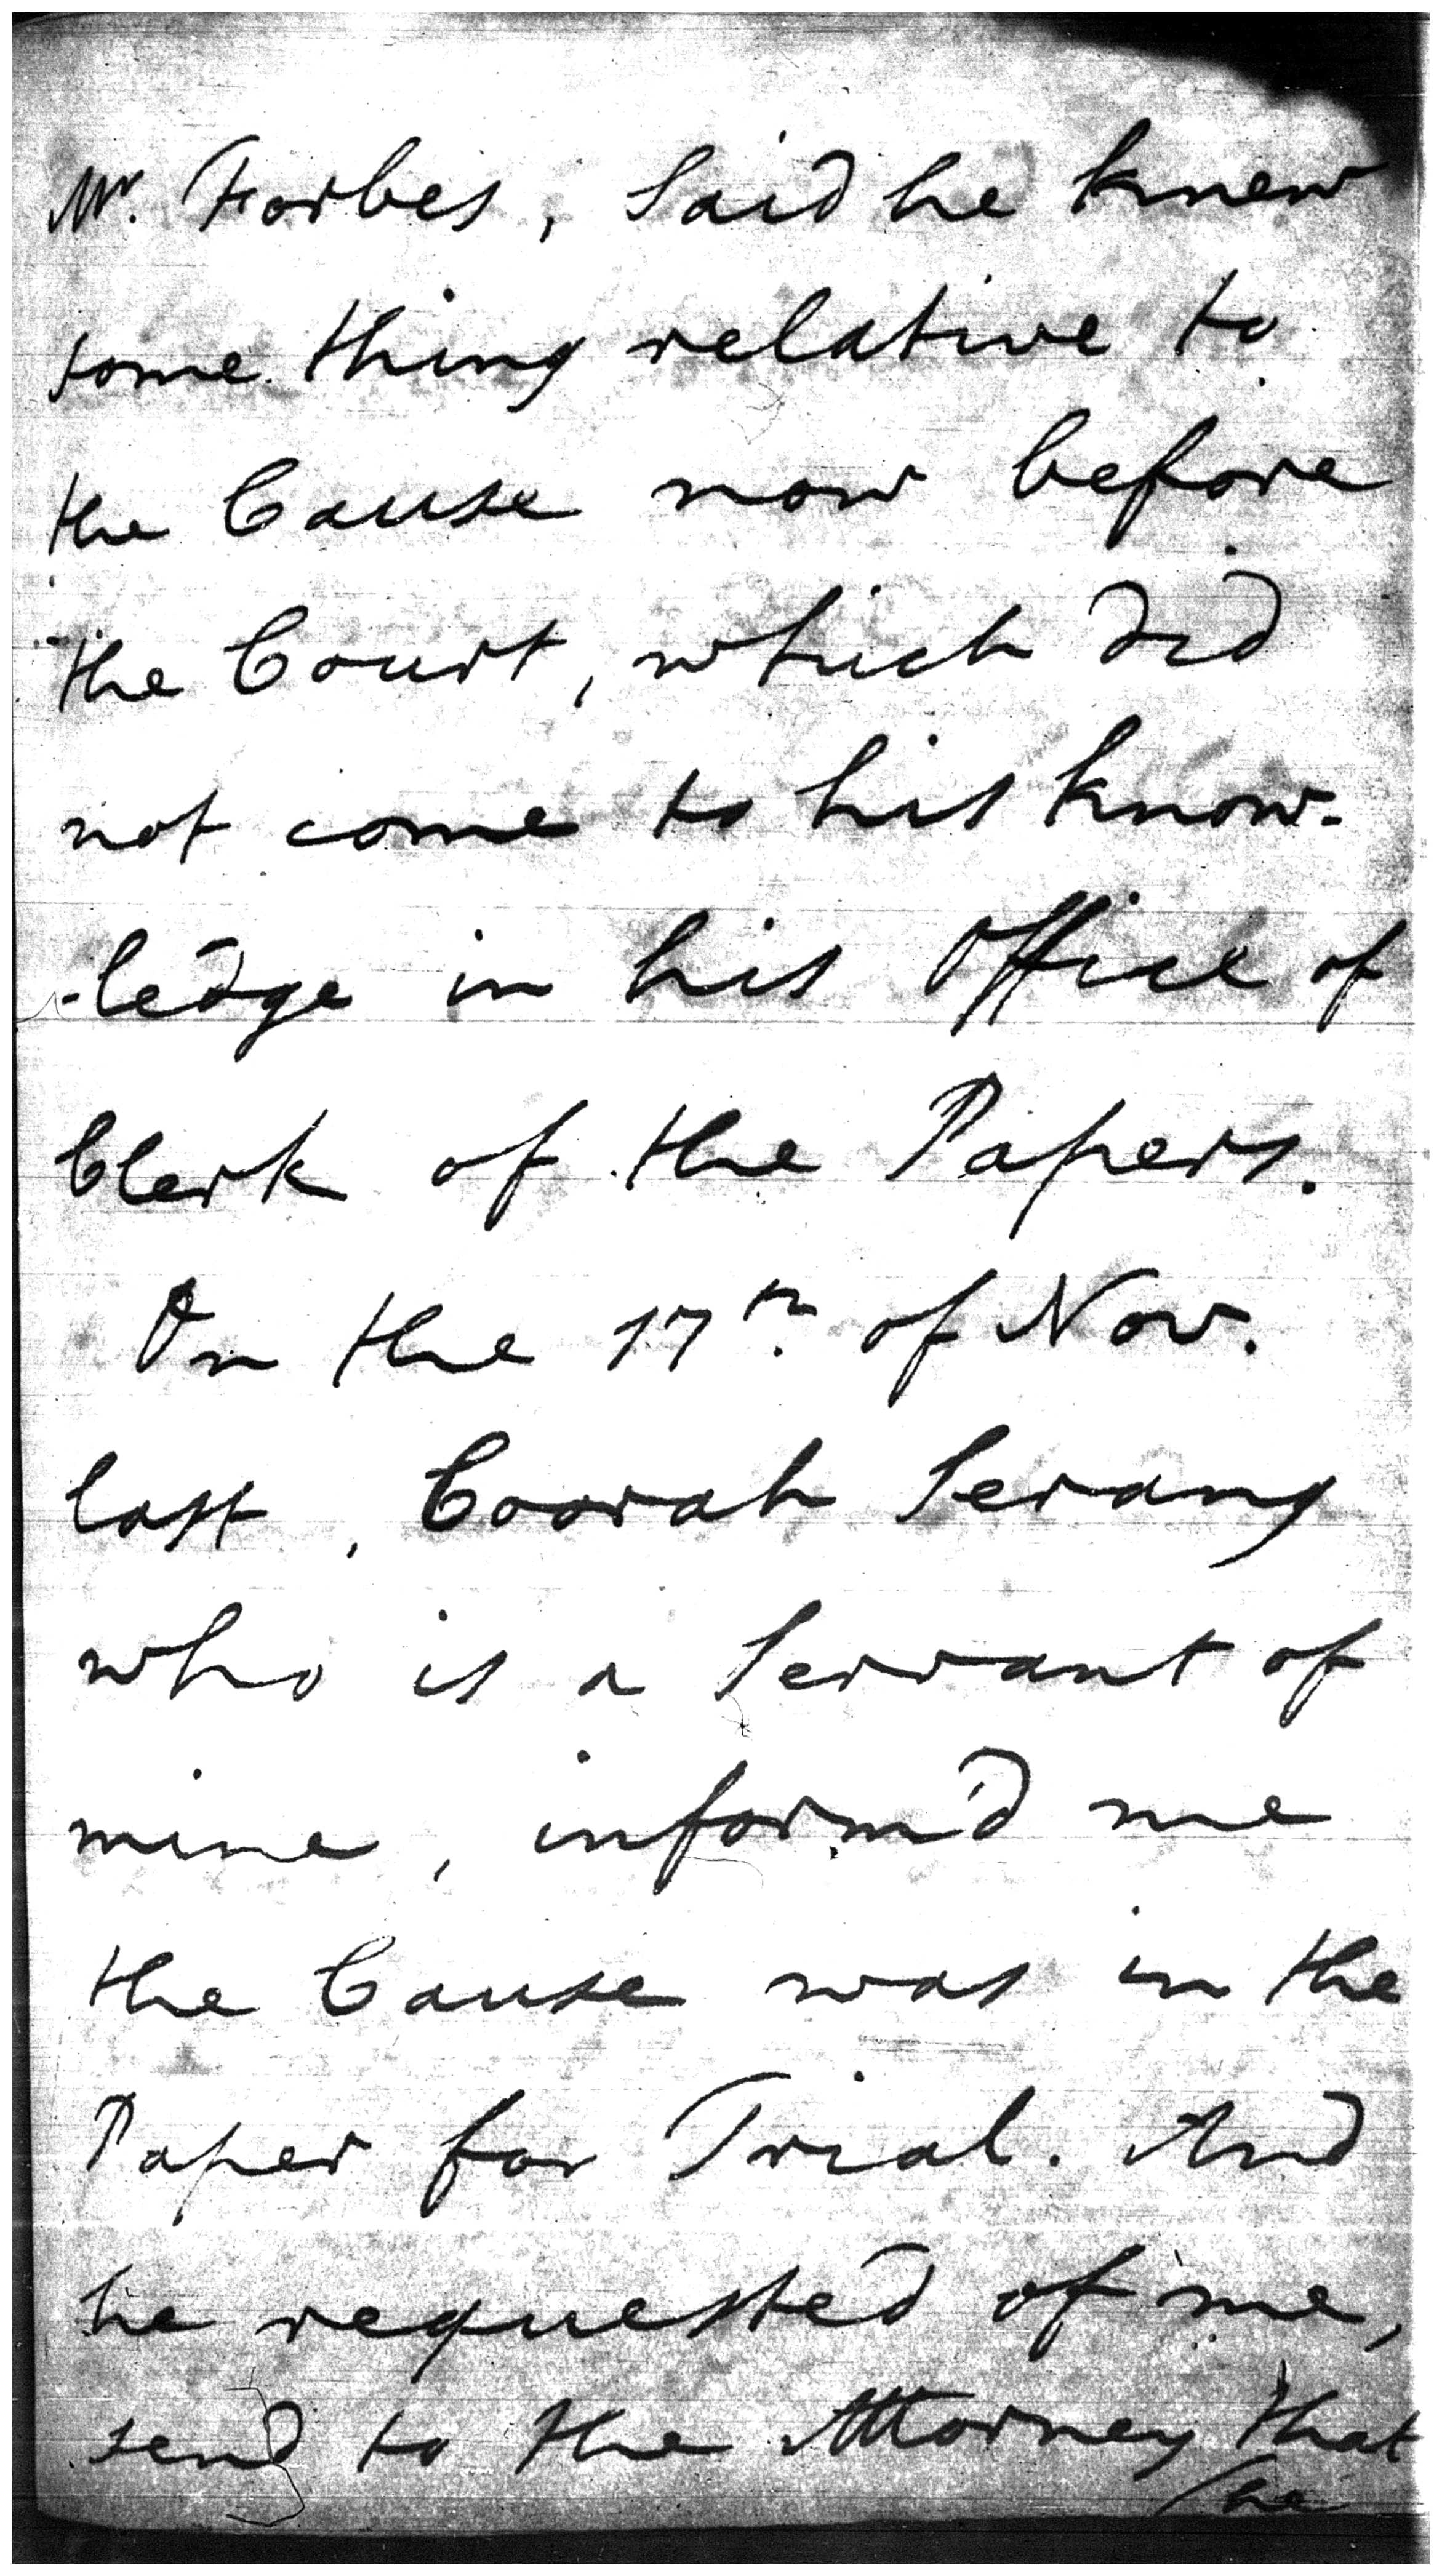 Mr. Forbes, Said he knew
some thing relative to
the Cause now before
the Court, which did
not come to his know-
-ledge in his Office of
Clerk of the Papers.
On the 17th. of Nov.
last, Coorah Serang
who is a Servant of
mine, inform'd me
the Cause was in the
Paper for Trial. And
he requested of me,
send to the Attorney that
he